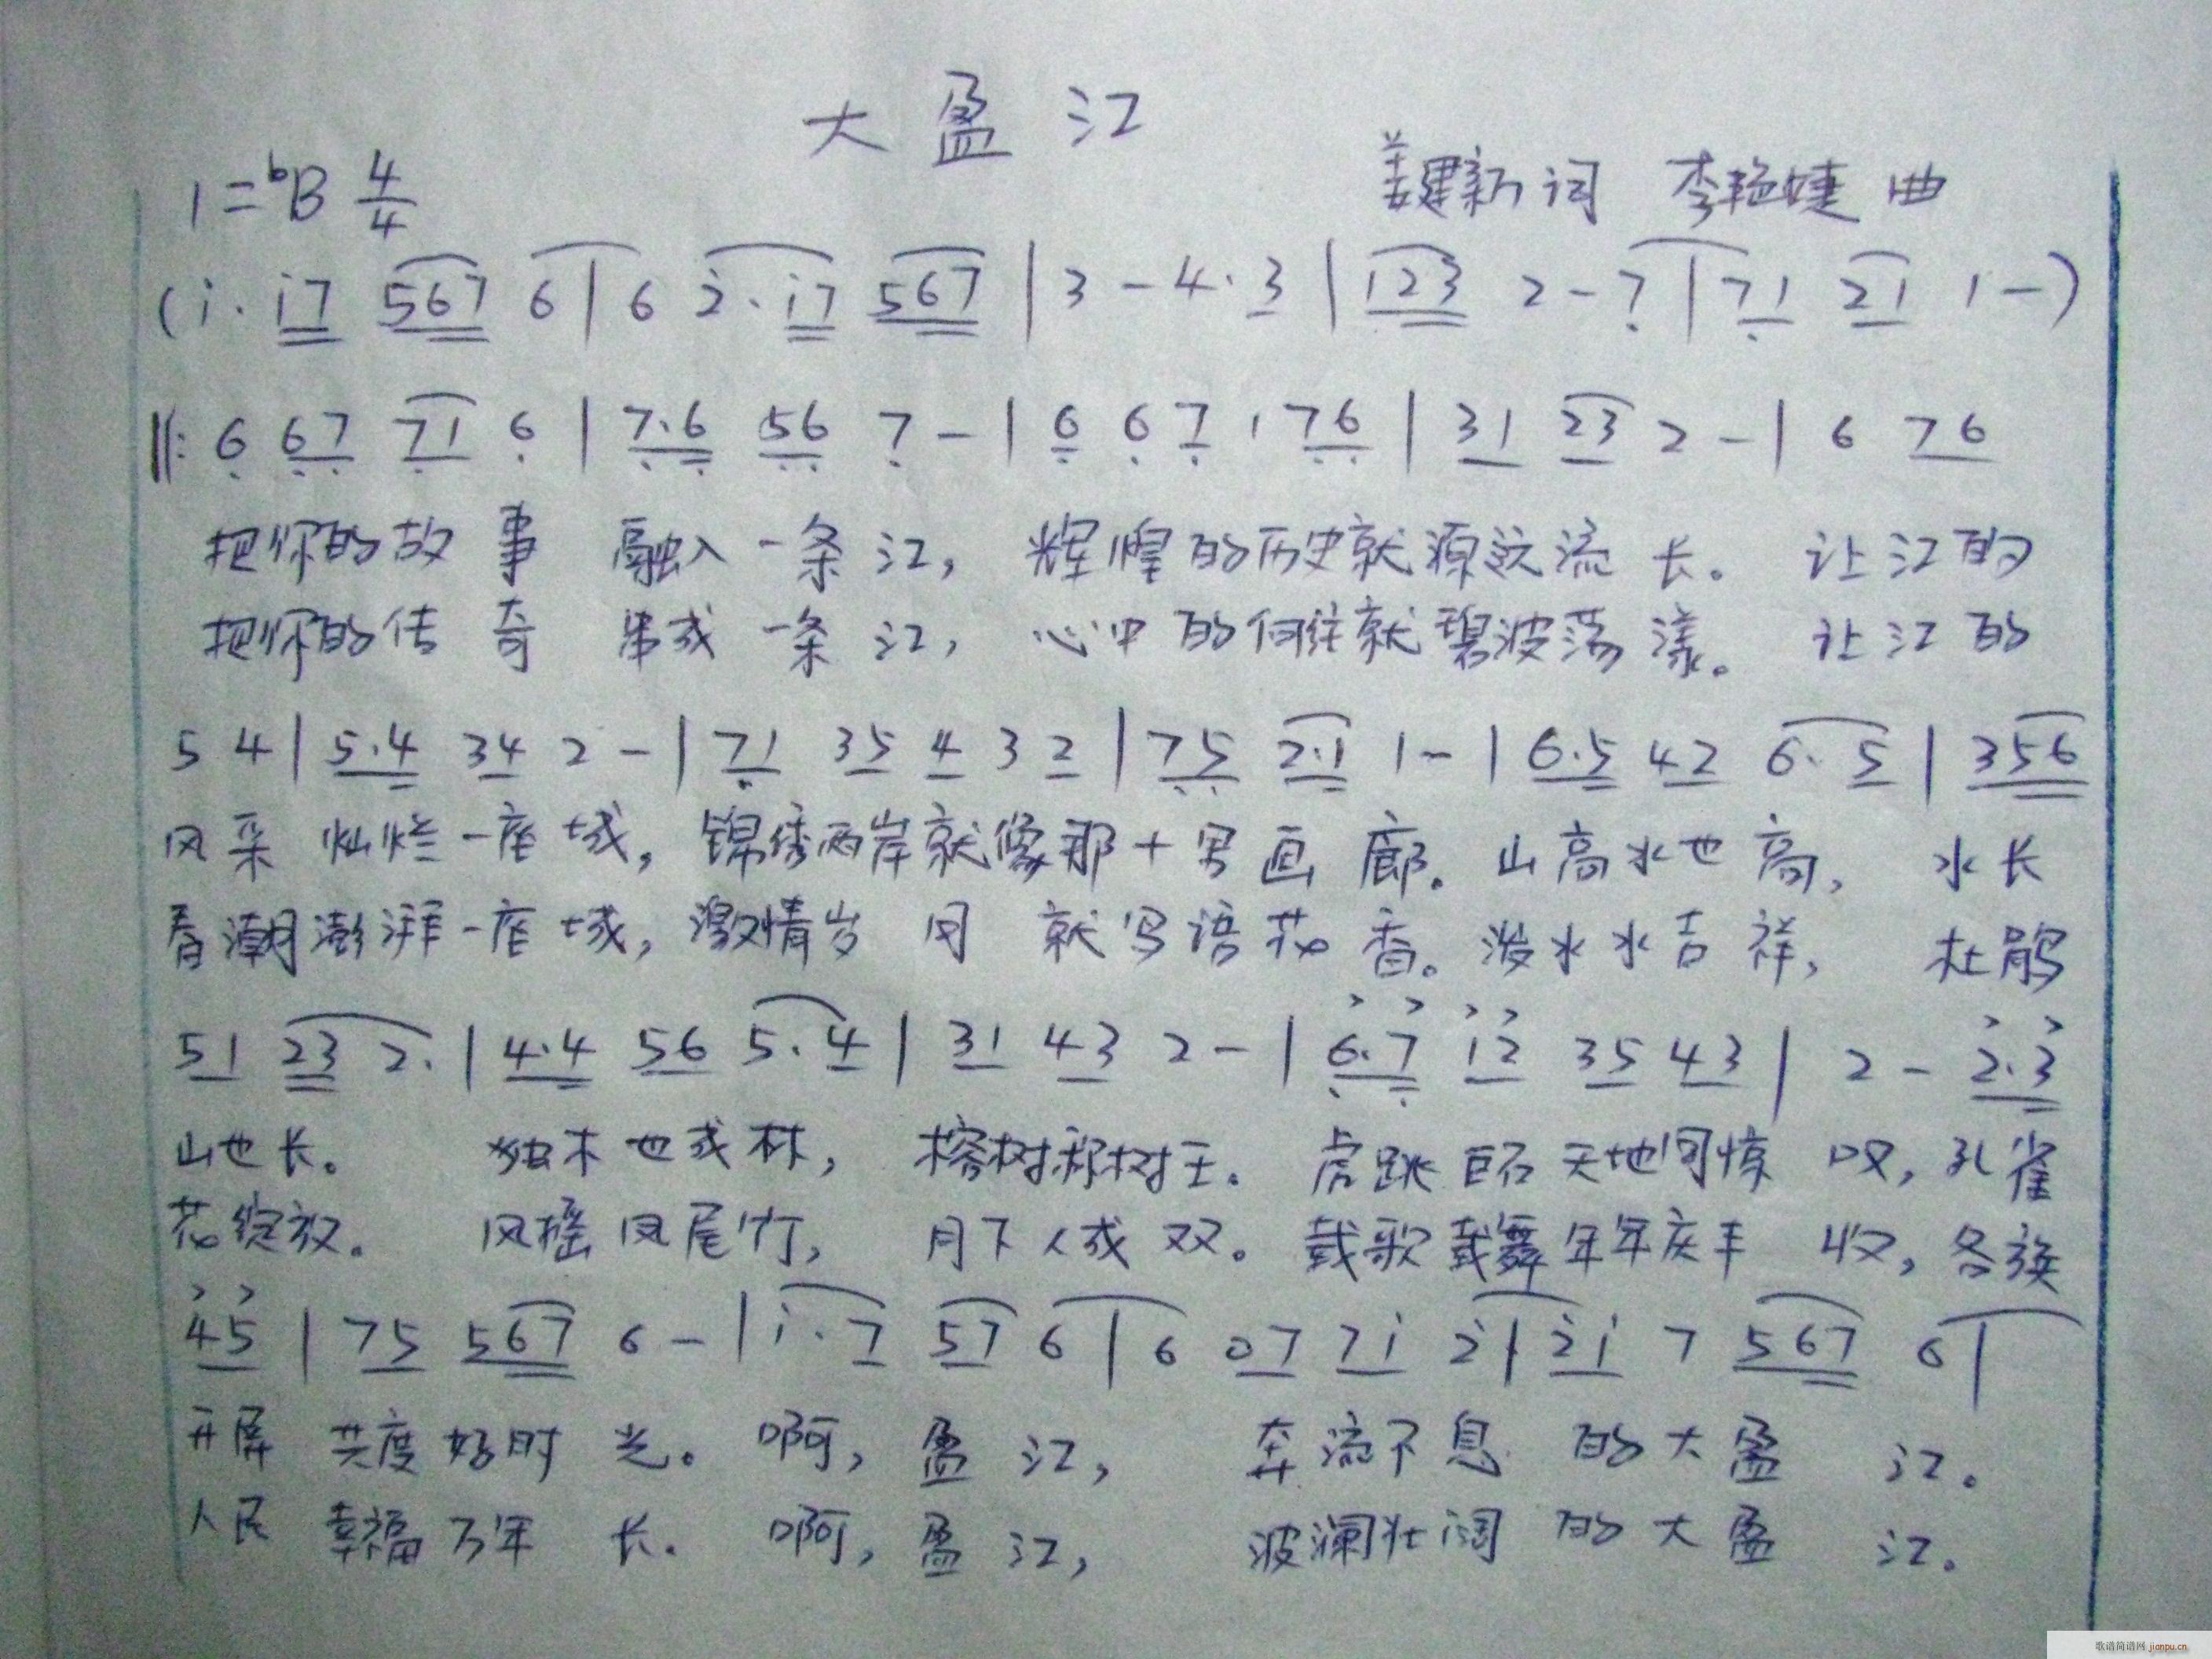 大盈江
1=ᵇB 4/4
姜建新词 李艳婕 曲
(i· i7 567 6 | 6 2· i7 567 | 3 - 4·3 | 123 2 - 7 | 71 21 1 -)
‖: 6 67 71 6 | 7·6 56 7 - | 6 6 7 1 76 | 31 23 2 - | 6 76
把你的故事 融入一条江, 辉煌的历史就源远流长。 让江的
把你的传奇 串成一条江, 心中的向往就碧波荡漾。 让江的
5 4 | 5·4 34 2 - | 71 35 4 3 2 | 75 2·1 1 - | 6·5 42 6· 5 | 356
风采 灿烂一座城, 锦绣两岸就像那十里画廊。 山高水也高, 水长
春潮澎湃一座城, 激情岁月 就鸟语花香。 泼水水吉祥, 杜鹃
51 23 2· | 4·4 56 5·4 | 31 43 2 - | 6·7 12 35 43 | 2 - 2·3
山也长。 独木也成林, 榕树称树王。 虎跳巨石天地间惊叹, 孔雀
花绽放。 风摇凤尾竹, 月下人成双。 载歌载舞年年庆丰收, 各族
45 | 75 567 6 - | i· 7 57 6 | 6 07 7i 2 | 2i 7 567 6 |
开屏 共度好时光。 啊, 盈江, 奔流不息 的大盈江。
人民 幸福万年长。 啊, 盈江, 波澜壮阔 的大盈江。
歌谱简谱网 jianpu.cn